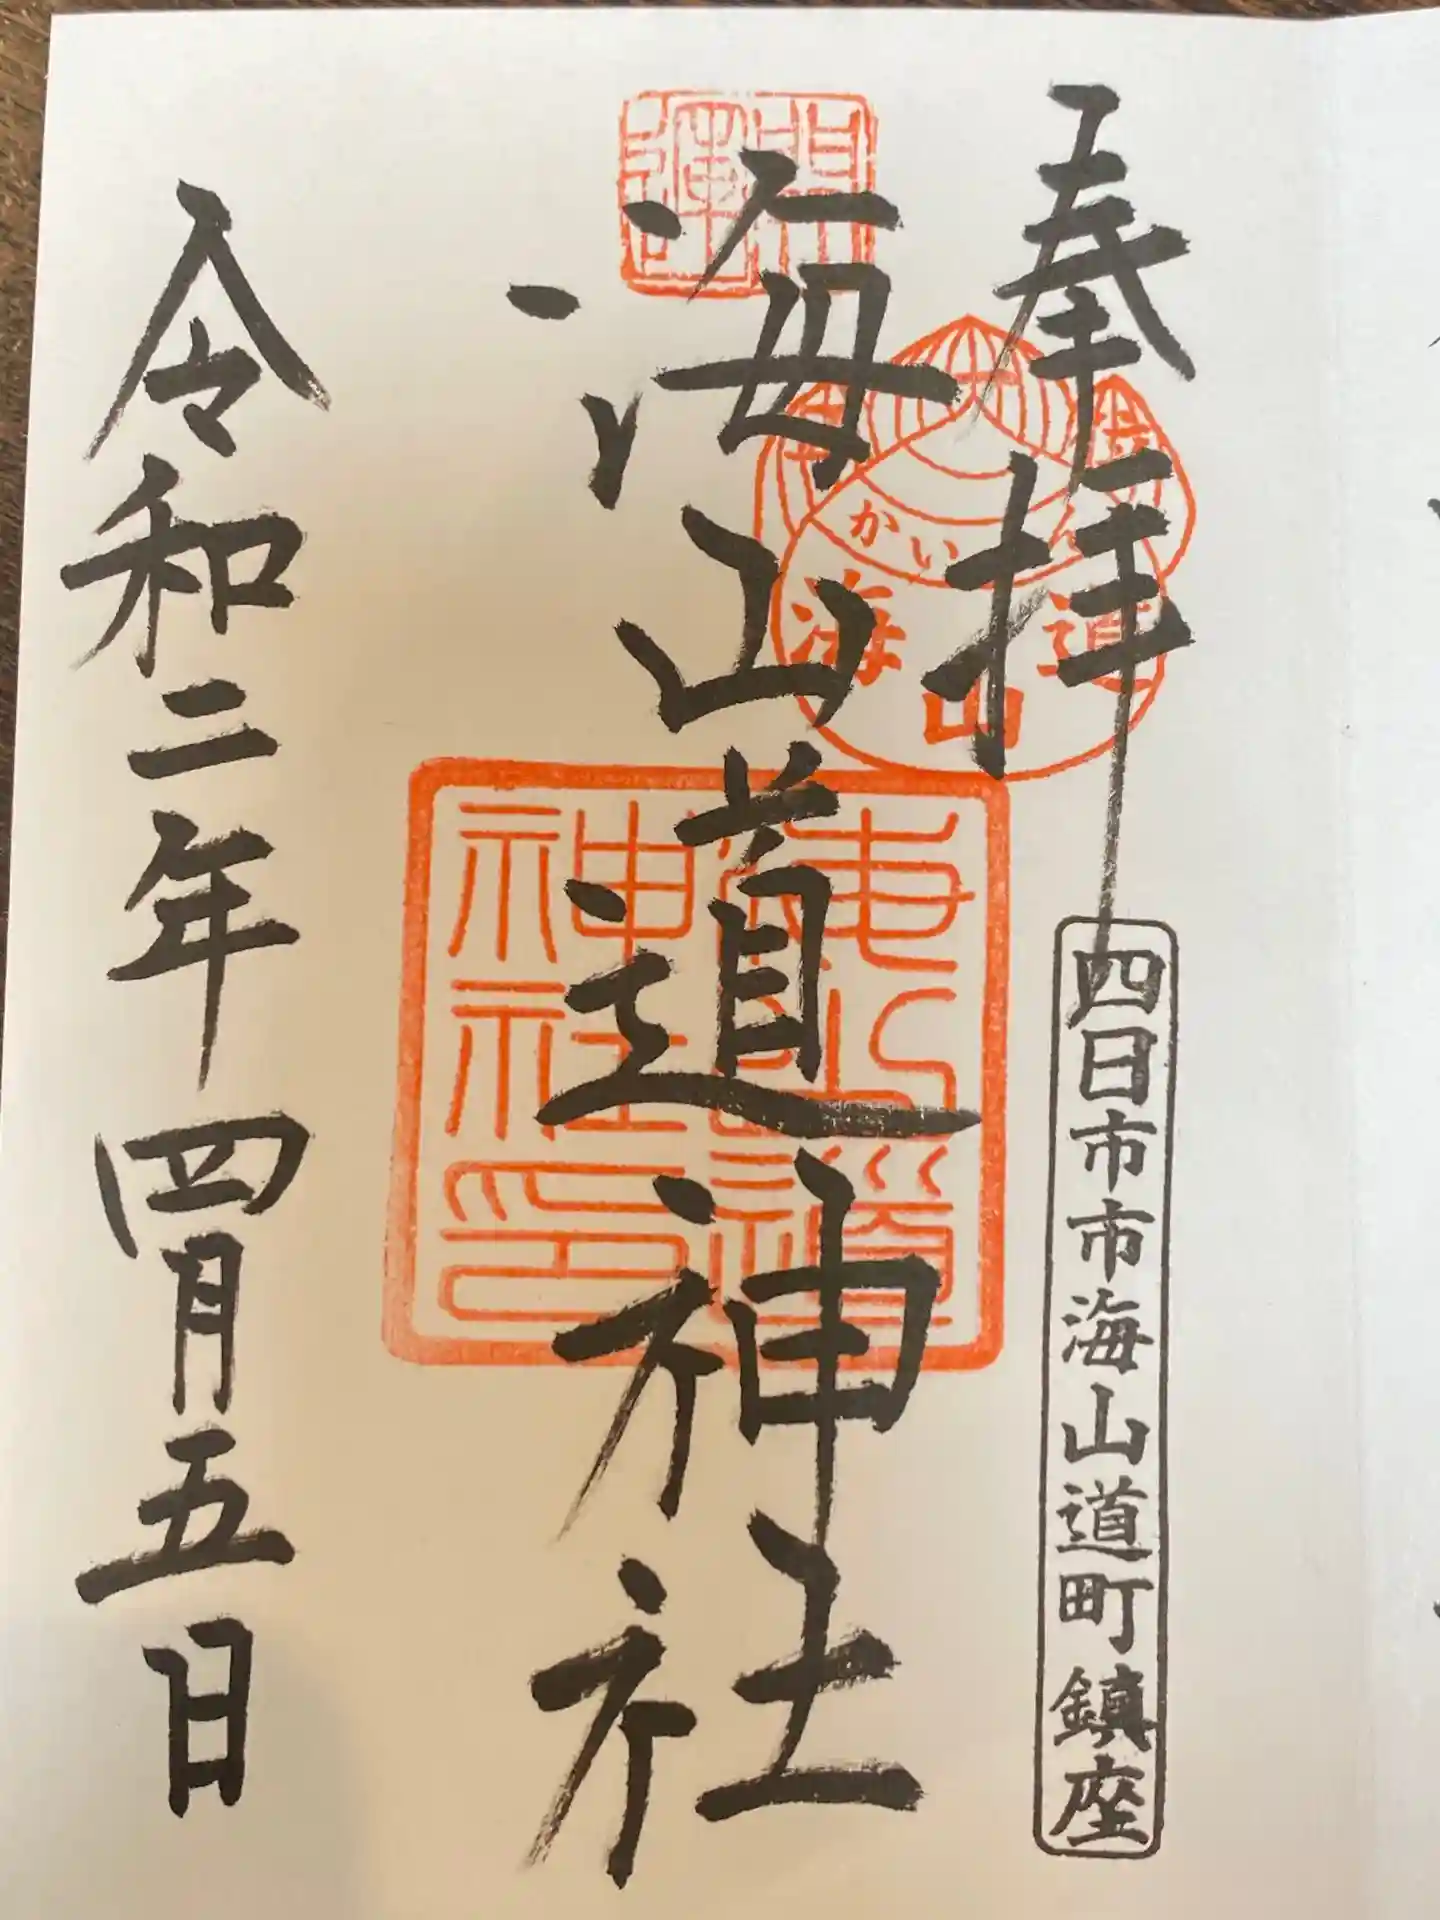 奉拝
四日市市海山道町鎮座
開運
かい
ん
海山道
海山道神社
海山道
神社印
令和二年四月五日